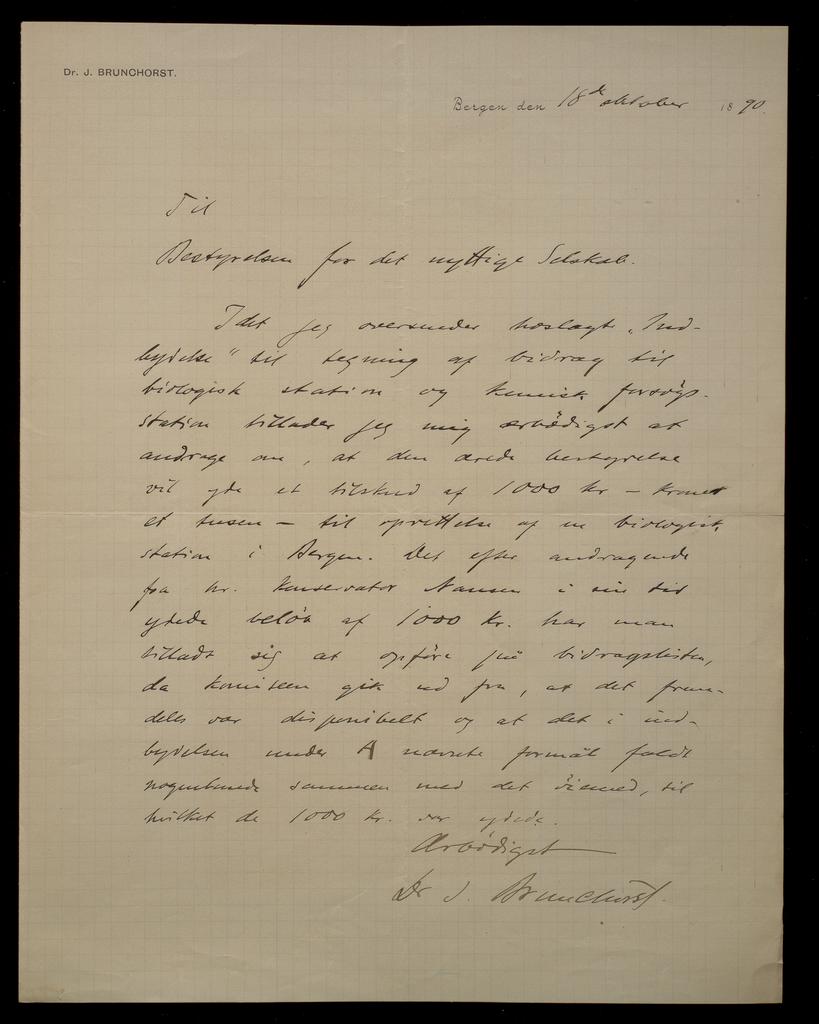 Dr. J. BRUNCHORST.
Bergen den 18de oktober 1890.
Til
Bestyrelsen for det nyttige Selskab.
Idet jeg oversender hoslagt „Ind-
bydelse" til tegning af bidrag til
biologisk station og kemisk forsögs-
station tillader jeg mig ærbödigst at
andrage om, at den ærede bestyrelse
vil yde et tilskud af 1000 kr – kroner
et tusen – til oprettelse af en biologisk
station i Bergen. Det efter andragende
fra hr. Konservator Nansen i sin tid
ydede belöb af 1000 Kr. har man
tilladt sig at opföre på bidragslisten,
da komiteen gik ud fra, at det frem-
deles var disponibelt og at det i ind-
bydelsen under A nævnte formål faldt
nogenlunde sammen med det öiemed, til
hvilket de 1000 Kr. var ydede.
Ærbödigst
Dr J. Brunchorst.